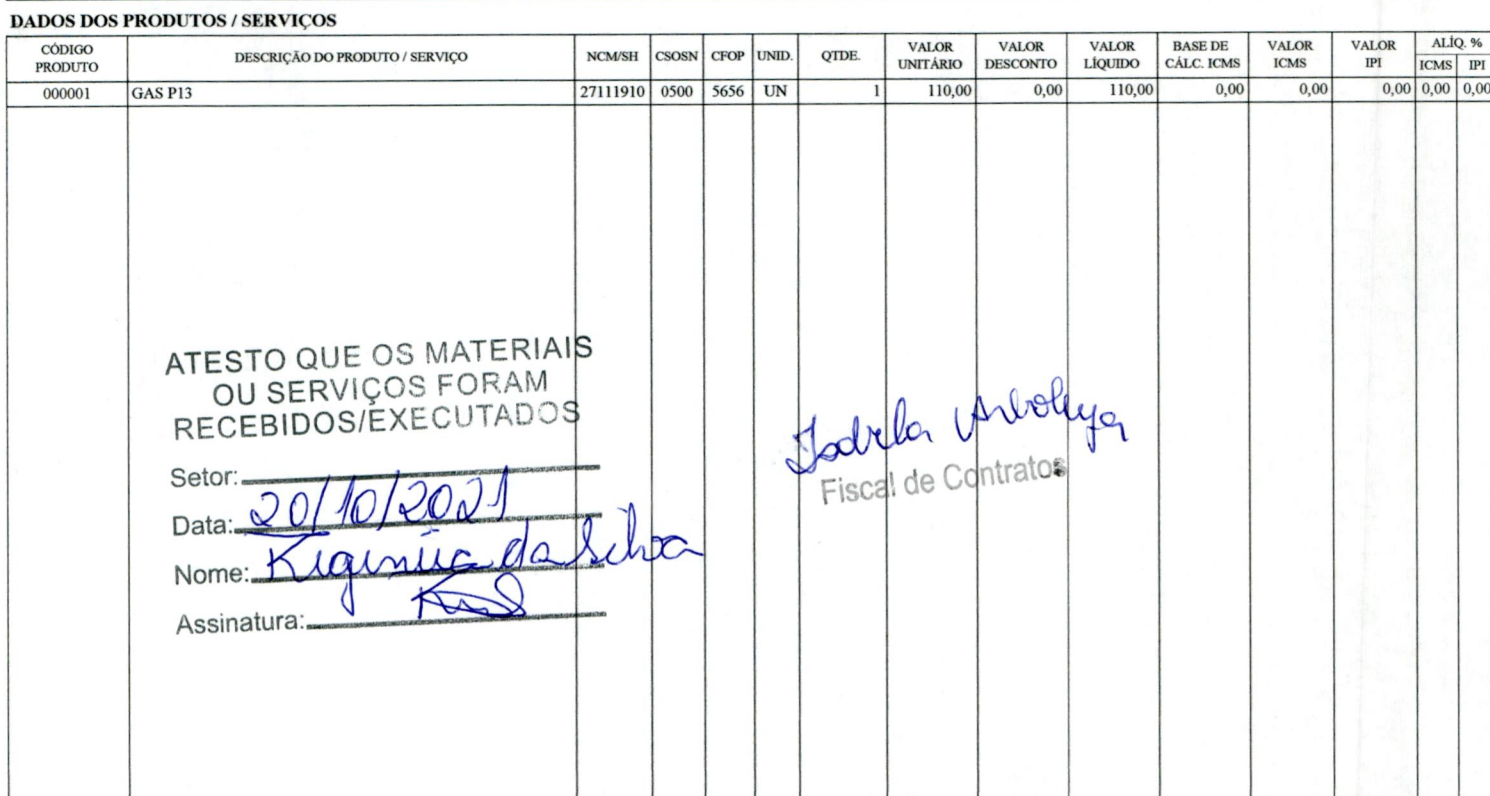 DADOS DOS PRODUTOS / SERVIÇOS
CÓDIGO PRODUTO DESCRIÇÃO DO PRODUTO / SERVIÇO NCM/SH CSOSN CFOP UNID. QTDE. VALOR UNITÁRIO VALOR DESCONTO VALOR LÍQUIDO BASE DE CÁLC. ICMS VALOR ICMS VALOR IPI ALÍQ. % ICMS IPI
000001 GAS P13 27111910 0500 5656 UN 1 110,00 0,00 110,00 0,00 0,00 0,00 0,00 0,00
ATESTO QUE OS MATERIAIS
OU SERVIÇOS FORAM
RECEBIDOS/EXECUTADOS
Setor:
Data: 20/10/2021
Nome: da Silva
Assinatura:
Fiscal de Contratos